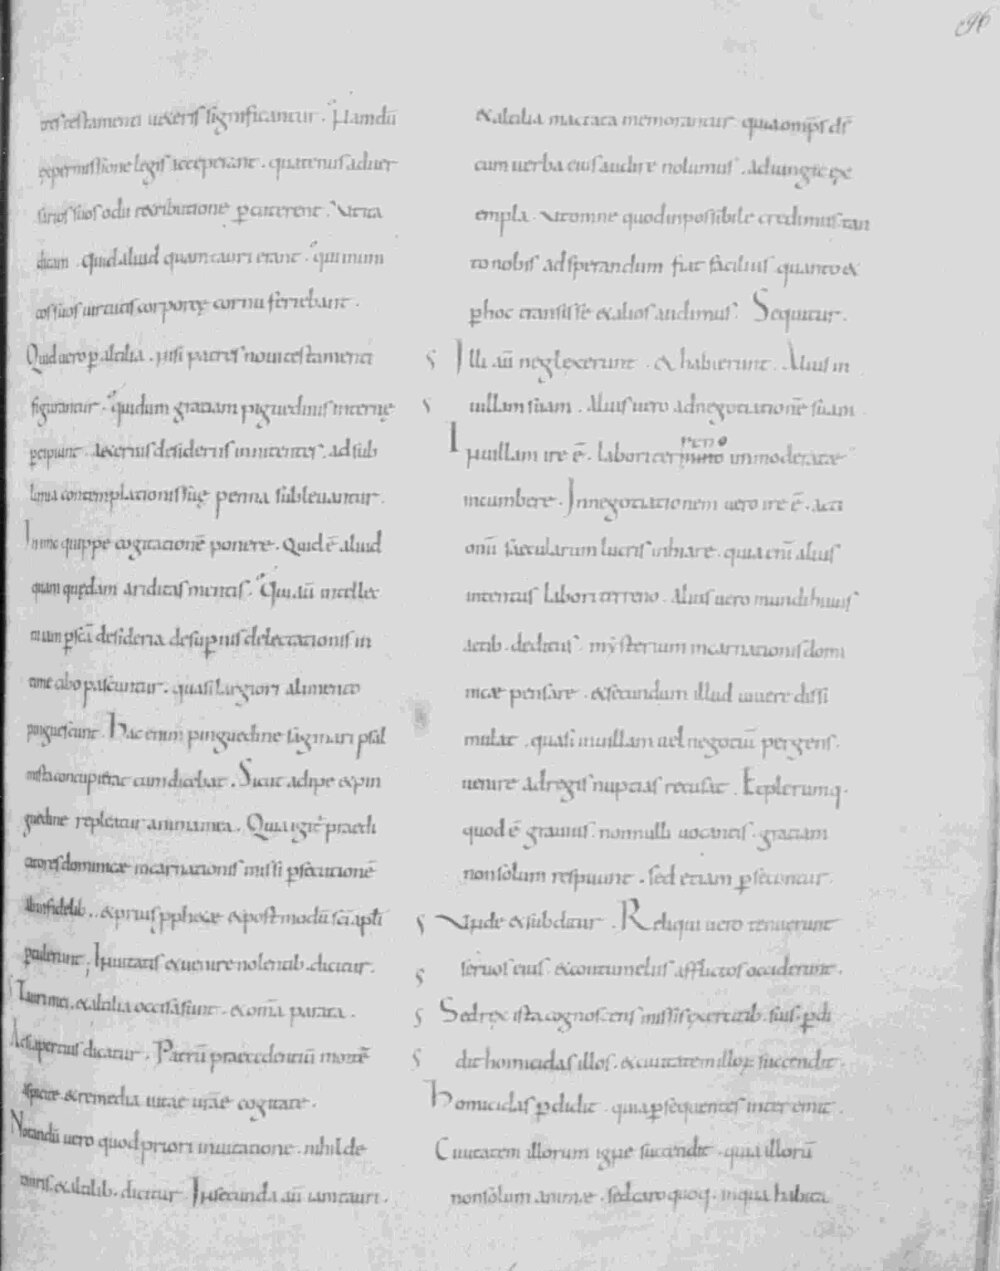 96
tres testamenti ueteris significantur. Nam dū
ex permissione legis acceperant. quatenus aduer
sarios suos odii retributione ꝑcuterent. Ut ita
dicam. quid aliud quam tauri erant. qui inimi
cos suos uirtutis corporeę cornu feriebant.
Quid uero ꝑ altilia. nisi patres noui testamenti
figurantur. qui dum gratiam pinguedinis internę
ꝑcipiunt. a terrenis desideriis innitentes. ad sub
limia contemplationis suę penna subleuantur.
In imo quippe cogitationē ponere. quid ē aliud
quam quędam ariditas mentis. Qui aū intellec
tu iam ꝑ scā desideria de supernis delectationis in
time cibo pascuntur. quasi largiori alimento
pinguescunt. Hac enim pinguedine saginari psal
mista concupierat cum dicebat. Sicut adipe & pin
guedine repleatur anima mea. Quia igit̄ praedi
catores dominicae incarnationis missi ꝑsecutionē
ab infidelib. & prius ꝓphetae & postmodū sc̄i apl̄i
ꝑtulerunt, Inuitatis & uenire nolentib. dicitur.
Tauri mei. & altilia occisa sunt. & om̄a parata.
Ac si apertius dicatur. Patrū praecedentiū mortē
aspicite & remedia uitae urāe cogitate.
Notandū uero quod priori inuitatione. nihil de
tauris. & altilib. dicitur. In secunda aū iam tauri.
& altilia mactata memorantur quia omp̄s d̄s
cum uerba eius audire nolumus. adiungit ex
empla. Ut omne quod inpossibile credimus. tan
to nobis ad sperandum fiat facilius quanto ex
ꝑ hoc transisse & alios audimus. Sequitur.
Illi aū neglexerunt. & habierunt. Alius in
uillam suam. Alius uero ad negotiationē suam.
In uillam ire ē. labori terreno immoderatae
incumbere. In negotiationem uero ire ē. acti
onū saecularum lucris inhiare. quia eni alius
intentus labori terreno. Alius uero mundi huius
actib. deditus. mysterium incarnationis domi
nicae pensare. & secundum illud uiuere dissi
mulat. quasi in uillam uel negotiū pergens.
uenire ad regis nuptias recusat. Et plerumq.
quod ē grauius. nonnulli uocantis. gratiam
non solum respuunt. sed etiam ꝑsecuntur.
Unde & subditur. Reliqui uero tenuerunt
seruos eius. & contumeliis afflictos occiderunt.
Sed rex ista cognoscens missis exercitib. suis. ꝑdi
dit homicidas illos. & ciuitatem illoꝝ succendit.
Homicidas ꝑdidit. quia ꝑsequentes interemit.
Ciuitatem illorum igne succendit. quia illorū
non solum animae. sed caro quoq. in qua habita